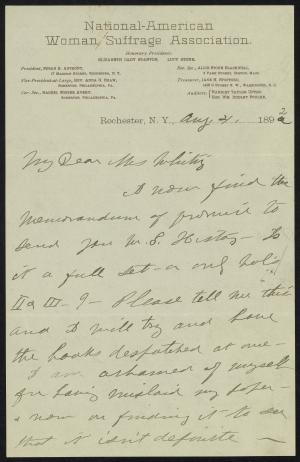 National-American
Woman Suffrage Association.
Honorary Presidents:
ELIZABETH CADY STANTON. LUCY STONE.
President, SUSAN B. ANTHONY,
17 MADISON STREET, ROCHESTER, N. Y.
Vice-President-at-Large, REV. ANNA H. SHAW,
SOMERTON, PHILADELPHIA, PA.
Cor. Sec., RACHEL FOSTER AVERY,
SOMERTON, PHILADELPHIA, PA.
Rec. Sec., ALICE STONE BLACKWELL,
3 PARK STREET, BOSTON, MASS.
Treasurer, JANE H. SPOFFORD,
WASHINGTON, D. C.
Auditors, HARRIET TAYLOR UPTON
Rochester, N. Y., Aug 21, 1892
My Dear Mrs Whitney
I now find the
memorandum of promise to
send you W. S. History - Is
it a full set - or only vols
II & III - ? - Please tell me this
and I will try and have
the books despatched at once -
I am ashamed of myself
for having mislaid my paper -
& now on finding it to see
that it isn't definite -